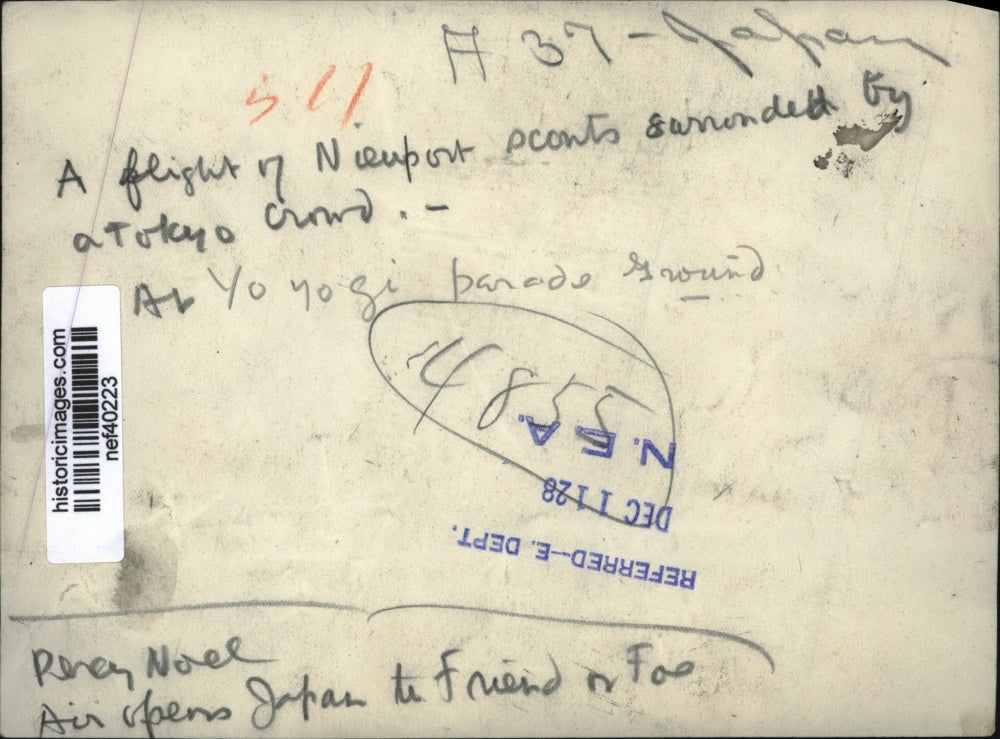 A 37 - Japan
511
A flight of Nieuport scouts surrounded by
a Tokyo crowd. -
At Yoyogi parade ground
historicimages.com
nef40223
4855
N.E.A.
DEC 11 28
REFERRED--E. DEPT.
Percy Noel
Air opens Japan to Friend or Foe